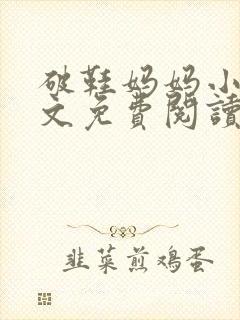 破鞋妈妈小
文免費閱讀
韭菜煎鸡蛋